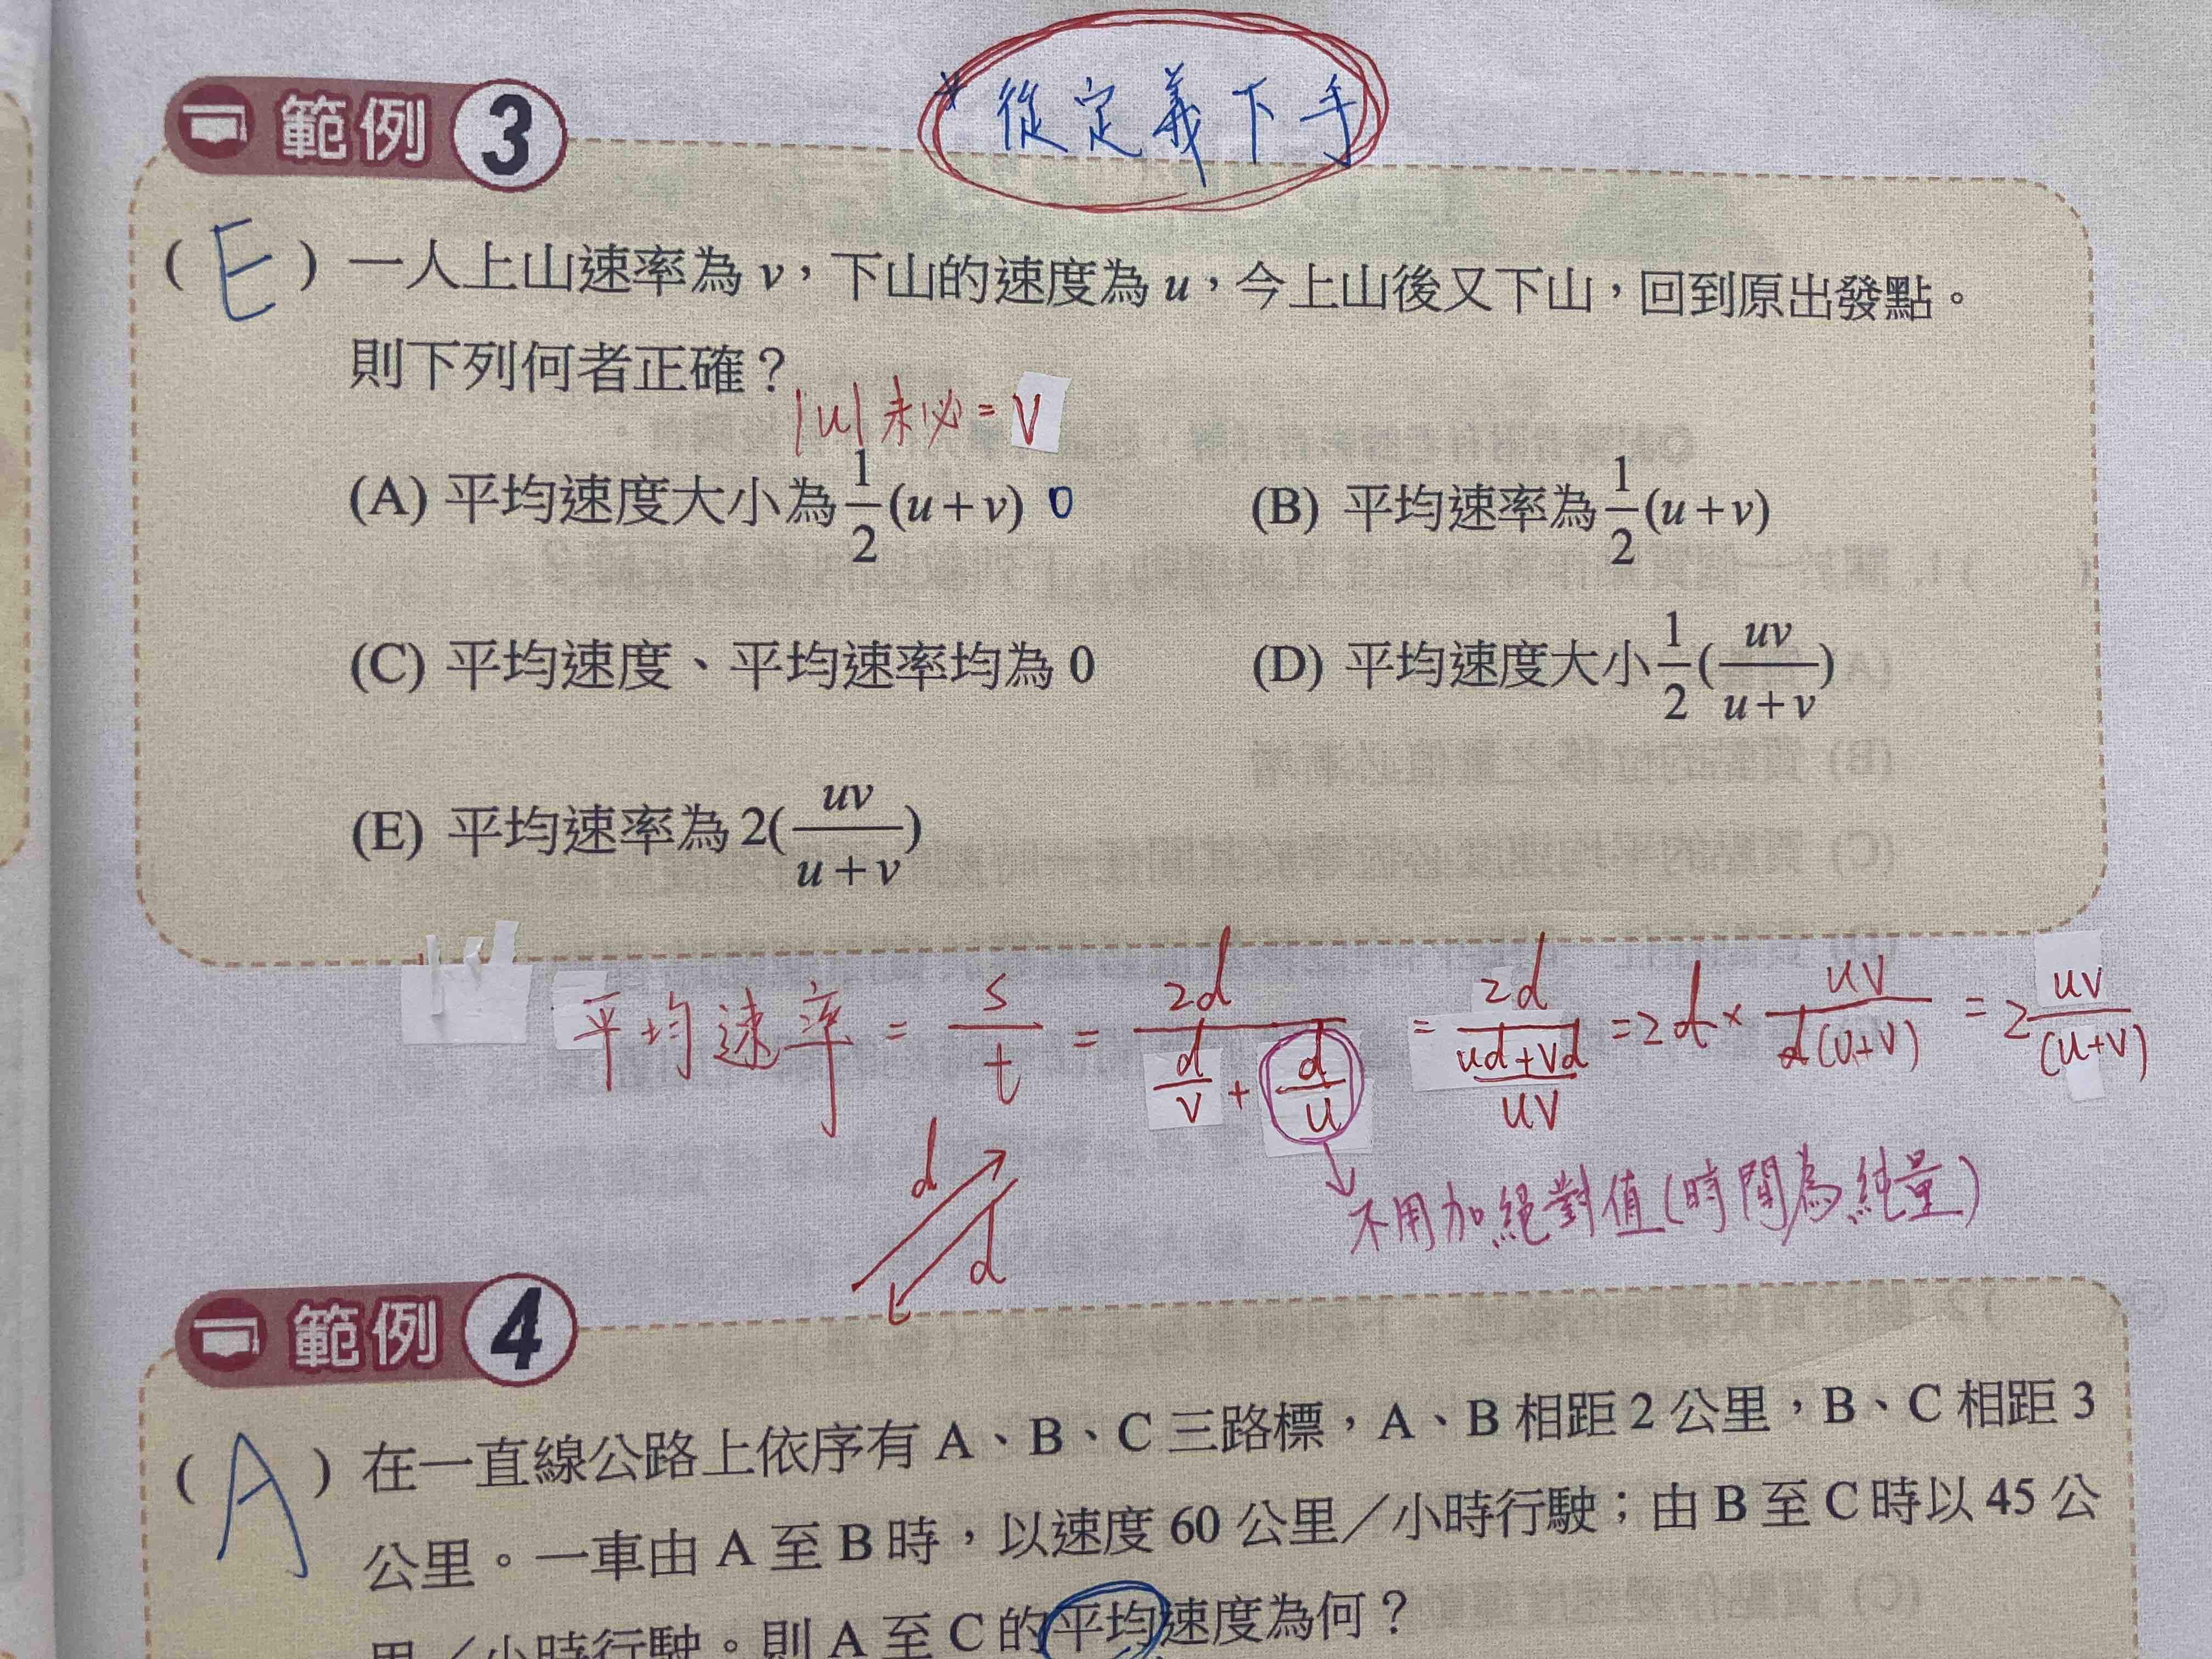 *從定義下手
範例 3
( E ) 一人上山速率為 v，下山的速度為 u，今上山後又下山，回到原出發點。
則下列何者正確？
|u| 未必 = V
(A) 平均速度大小為 1/2 (u + v) 0
(B) 平均速率為 1/2 (u + v)
(C) 平均速度、平均速率均為 0
(D) 平均速度大小 1/2 (uv/(u + v))
(E) 平均速率為 2(uv/(u + v))
平均速率 = s/t = 2d/(d/v + d/u) = 2d/((ud+vd)/uv) = 2d × uv/(d(u+v)) = 2 uv/(u+v)
d
d
不用加絕對值(時間為純量)
範例 4
( A ) 在一直線公路上依序有 A、B、C 三路標，A、B 相距 2 公里，B、C 相距 3
公里。一車由 A 至 B 時，以速度 60 公里／小時行駛；由 B 至 C 時以 45 公
里／小時行駛。則 A 至 C 的平均速度為何？